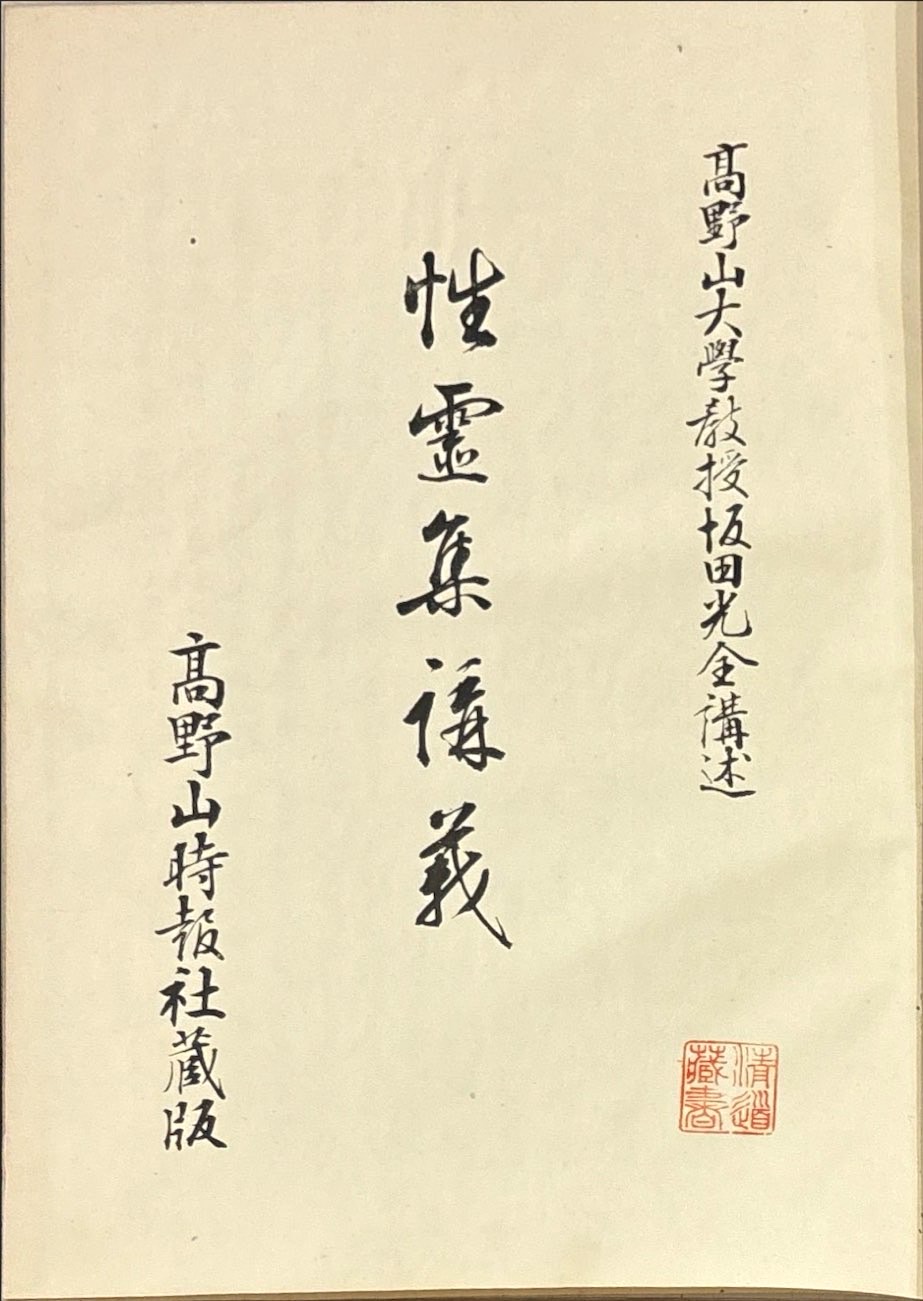 高野山大學教授坂田光全講述
性靈集講義
高野山時報社蔵版
清道
藏書